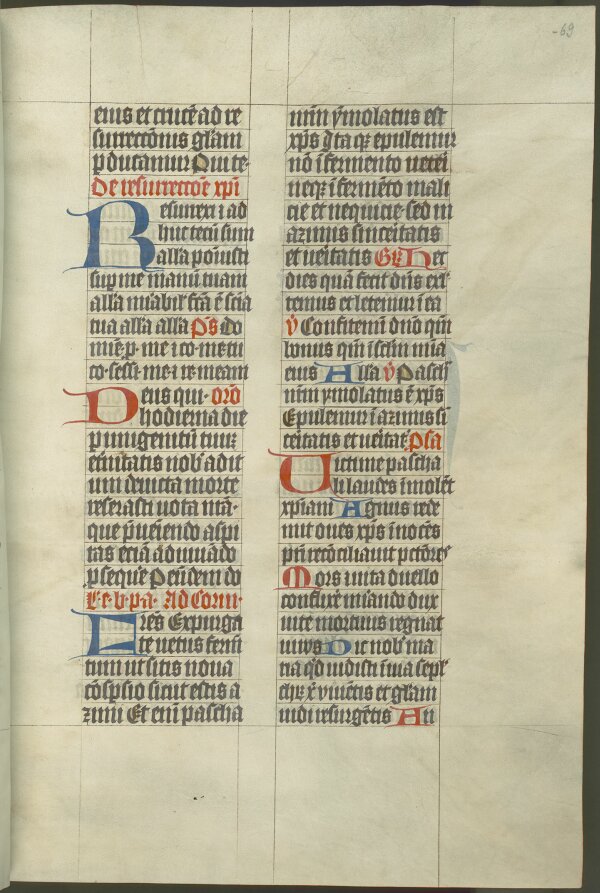 69
eius et crucē ad re
surrectōnis gl̄am
ꝑducamur Qui te·
De resurrectōe xp̄i
Resurexi ⁊ ad
huc tecū sum
alla posuisti
suꝑ me manū tuam
alla mirabil' fc̄a ē scīa
tua alla alla p̄s Do
mīe·p·me ⁊ co·me·tu
co·sess·me·⁊ re·meam
Deus qui· orō
hodierna die
ꝑ unigenitū tuū
et̄nitatis nob' adit
um deuicta morte
reserasti uota nr̄a·
que p̄ueniendo aspi
ras eciā adiuuādo
ꝓsequē Per eūdem do
Lc·b·pa· Ad Corin·
Frēs Expurga
te uetus fermē
tum ut sitis noua
cōspsio sicut estis a
zimi Et eni pascha
nr̄m ymolatus est
xp̄s Ita qꝫ epulemur
nō ī fermento ueteri
neqꝫ ī fermēto mali
cie et nequicie· sed in
azimis sinceritatis
et ueritatis Gr̄ Hec
dies quā fecit dn̄s exl
temus et letemur ī ea
v̄ Confitemī dn̄o qm̄
bonus qm̄ ī sclm̄ mīa
eius Alla v̄ Pascha
nr̄m ymolatus ē xp̄s
Epulemur ī azimis si
ceritatis et ueritat' psa
Uictime pascha
li laudes īmolēt
xp̄iani Agnus rede
mit oues xp̄s inocēs
pr̄i recōciliauit pctōres
Mors uita duello
conflixē mirando dux
uite mortuus regnat
uiuus Dic nob' ma
ria qd uidisti ī uia sepl'
chrū xp̄i uiuētis et gl̄am
uidi resurgētis An